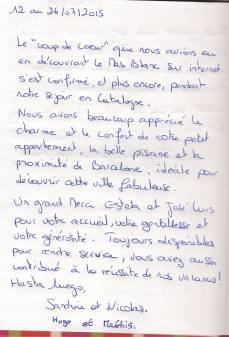 12 au 26/07/2015
Le "coup de coeur" que nous avions eu
en découvrant le Mas Blanc sur internet
s'est confirmé, et plus encore, pendant
notre séjour en Catalogne.
Nous avons beaucoup apprécié le
charme et le confort de notre petit
appartement, la belle piscine et la
proximité de Barcelone, idéale pour
découvrir cette ville fabuleuse.
Un grand Merci Estela et José Luis
pour votre accueil, votre gentillesse et
votre générosité. Toujours disponibles
pour rendre service, vous avez aussi
contribué à la réussite de nos vacances!
Hasta luego,
Sandrine et Nicolas.
Hugo et Mathis.